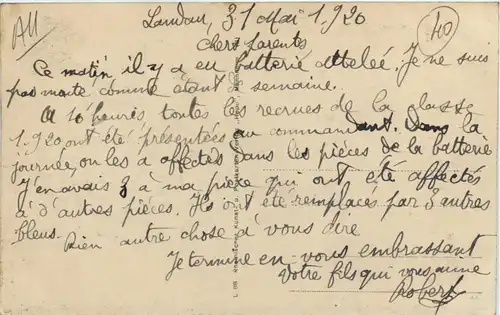 All
40
Landau, 31 Mai 1.920
Chers Parents
Ce matin il y a eu batterie attelée. Je ne suis
pas monté comme étant de semaine.
A 10 heures toutes les recrues de la classe
1.920 ont été présentées au commandant. Dans la
journée, on les a affectés dans les pièces de la batterie
Y en avais 3 à ma pièce qui ont été affectés
à d'autres pièces. Ils ont été remplacés par 3 autres
bleus.
Rien autre chose à vous dire
Je termine en vous embrassant
Votre fils qui vous aime
Robert